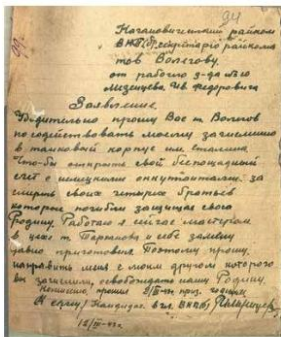 94
99.
Кагановический райком
ВКП(б) секретарю райкома
тов Волегову
от рабочего з-да №10
Мезенцева Ив. Федоровича
Заявление
Убедительно прошу Вас т. Волегов
посодействовать моему зачислению
в танковый корпус им. Сталина
Что-бы открыть свой беспощадный
счет с немецкими оккупантами за
смерть своих четырех братьев
которые погибли защищая свою
Родину. Работаю я сейчас мастером
в цехе т. и себе замену
давно приготовил Поэтому прошу,
направить меня с моим другом которого
вы зачислили, освобождать нашу Родину.
прошел прич. годным
К сему / Кандидат в чл. ВКП(б)